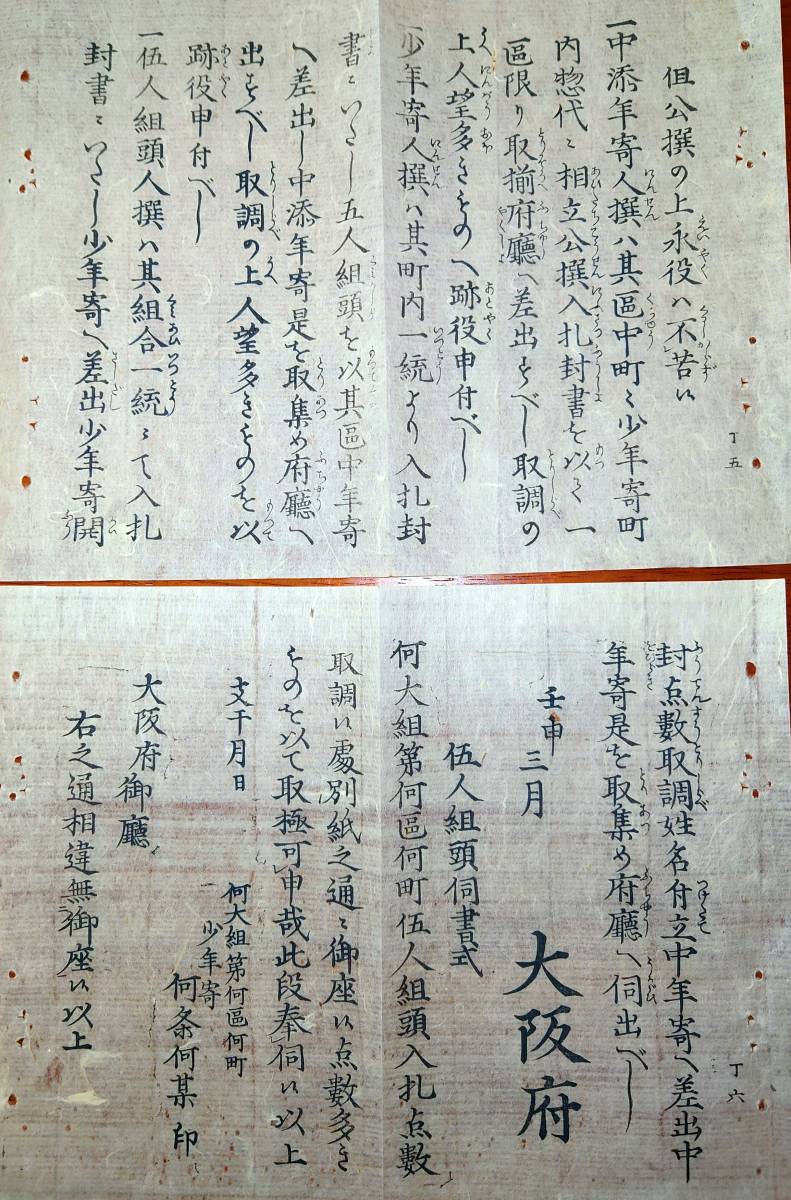 丁五
但公撰の上永役ハ不苦候
一中添年寄人撰ハ其區中町々少年寄町
内惣代ニ相立公撰入札封書を以て一
區限り取揃府廳へ差出すべし取調の
上人望多きものへ跡役申付べし
一少年寄人撰ハ其町内一統より入札封
書ニいたし五人組頭を以其區中年寄
へ差出し中添年寄是を取集め府廳へ
出すべし取調の上人望多きものを以
跡役申付べし
一伍人組頭人撰ハ其組合一統ニて入札
封書ニいたし少年寄へ差出少年寄開
丁六
封点數取調姓名付立中年寄へ差出中
年寄是を取集め府廳へ伺出べし
壬申三月
大阪府
伍人組頭伺書式
何大組第何區何町伍人組頭入札点數
取調候處別紙之通ニ御座候点數多き
ものを以て取極可申哉此段奉伺候以上
支干月日
何大組第何區何町
少年寄
何条何某印
大阪府御廳
右之通相違無御座候以上